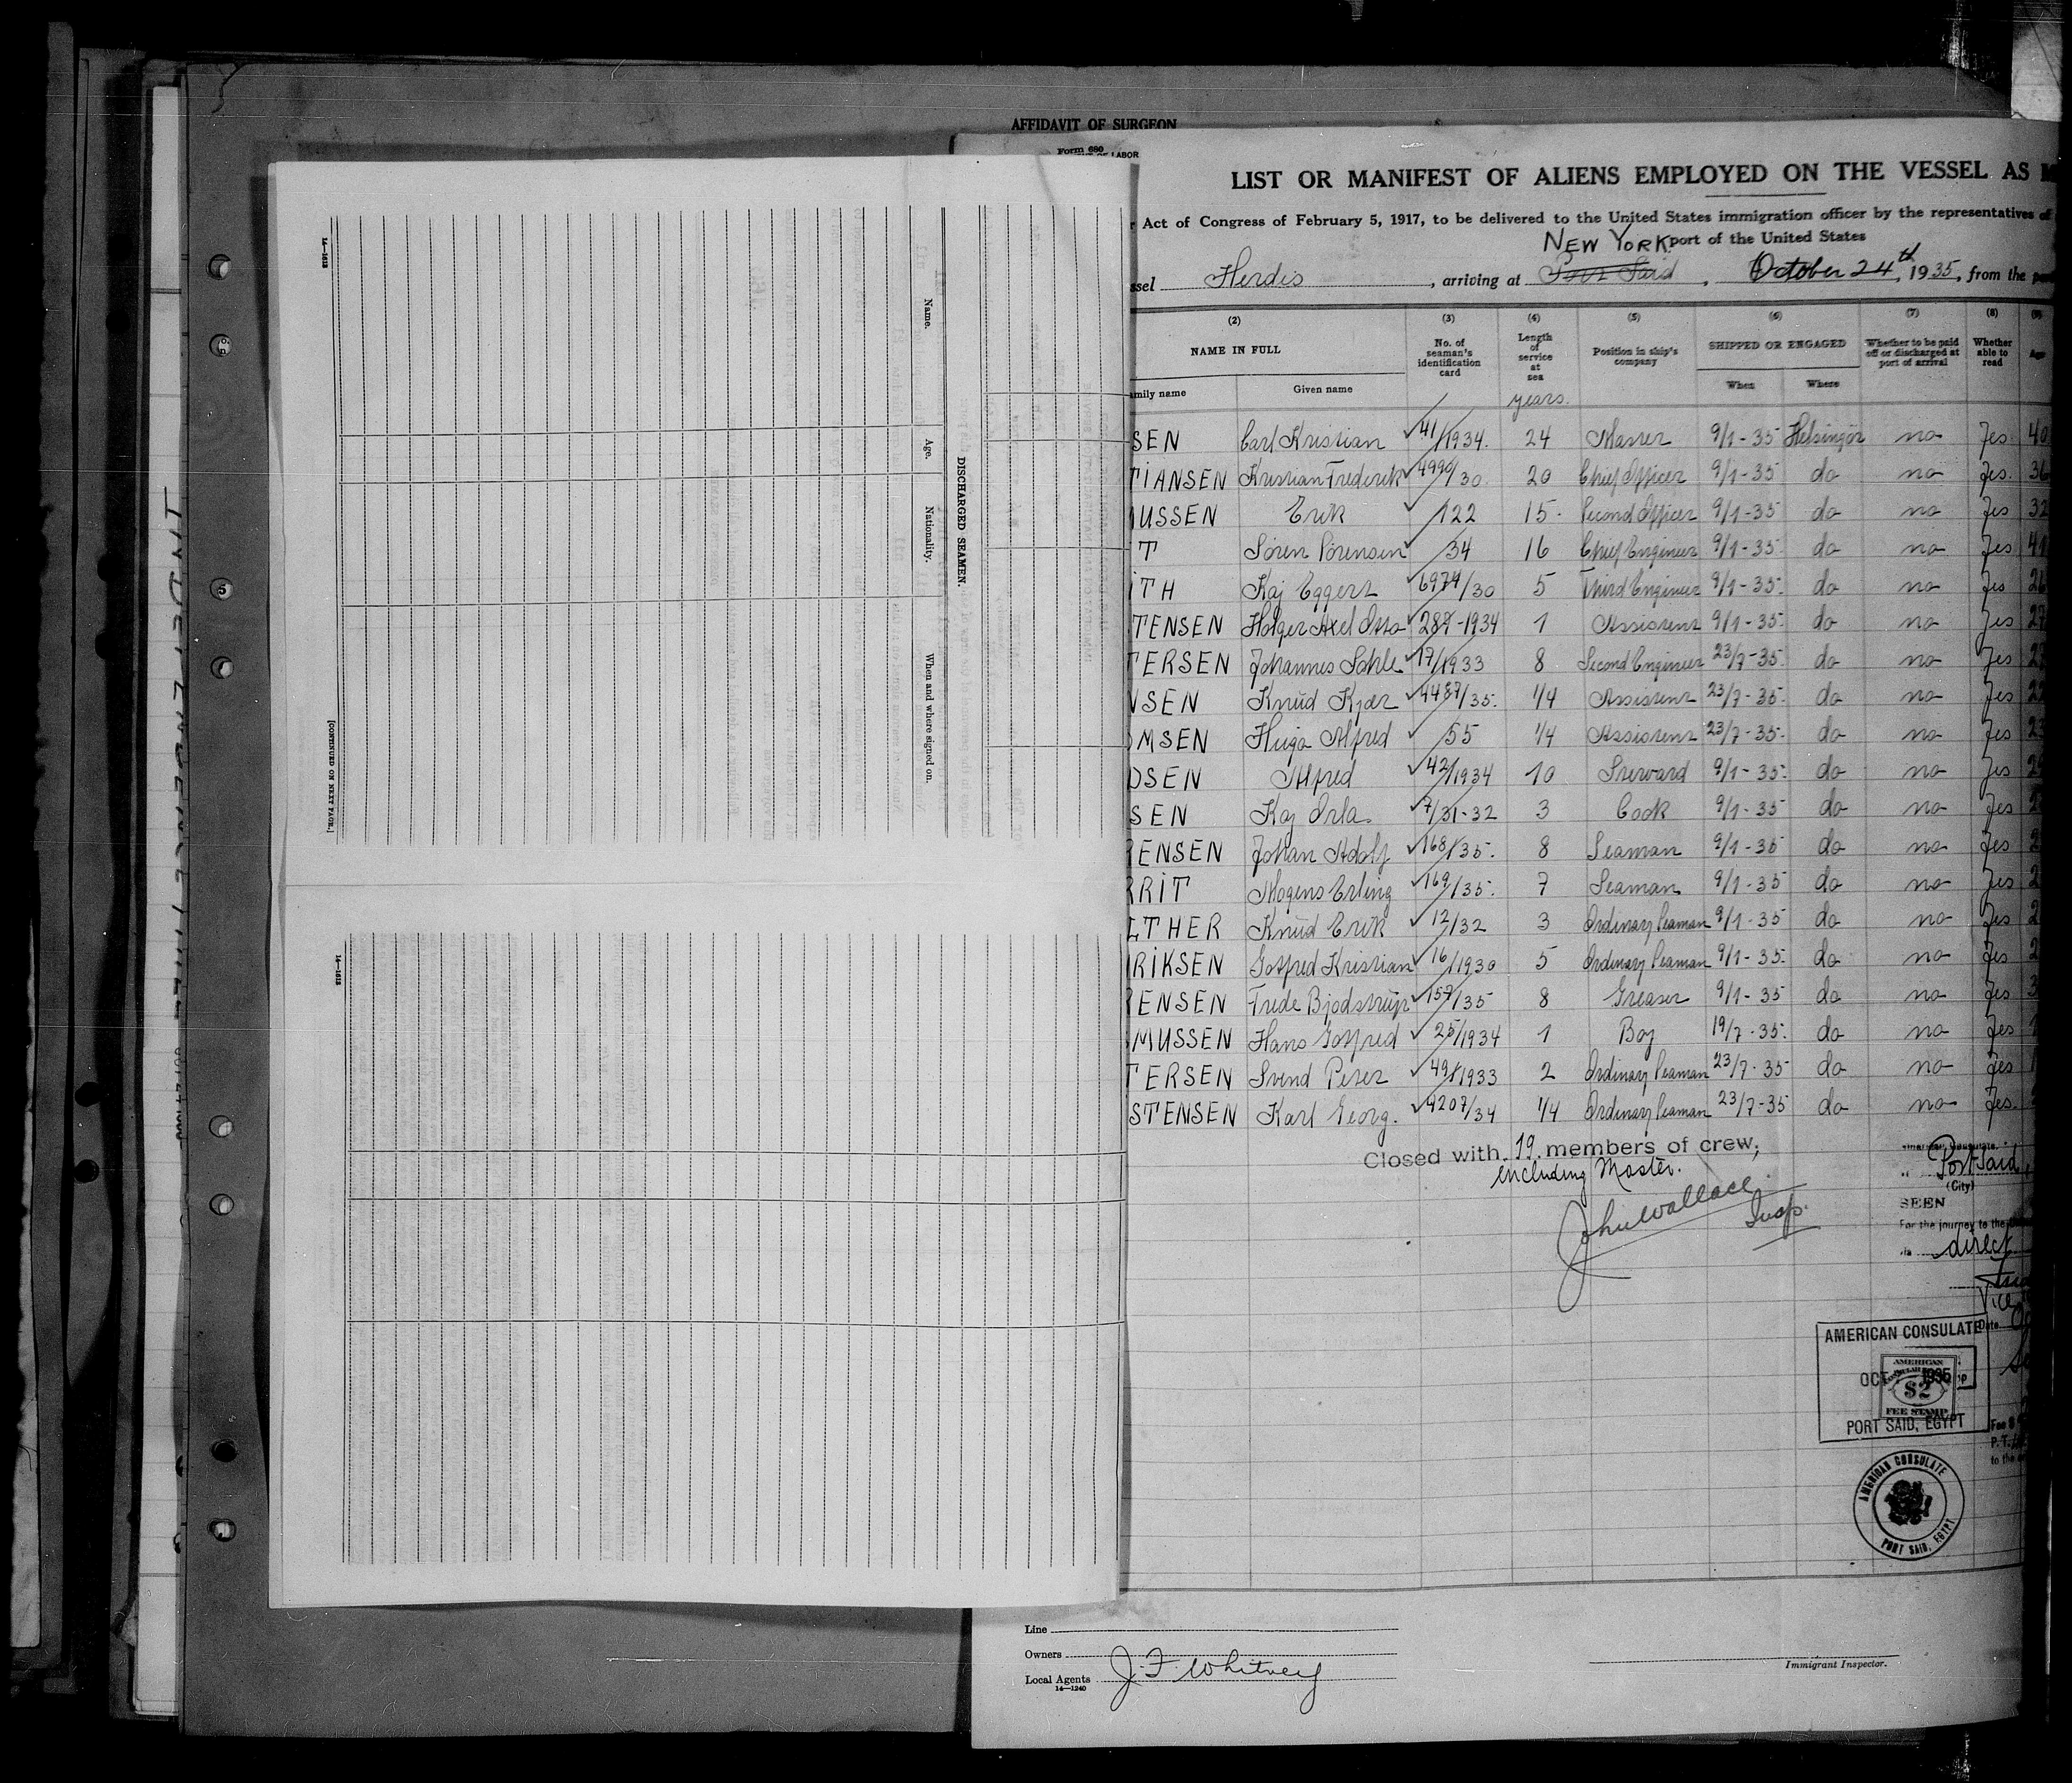 AFFIDAVIT OF SURGEON
Form 680
OF LABOR
LIST OR MANIFEST OF ALIENS EMPLOYED ON THE VESSEL AS
Act of Congress of February 5, 1917, to be delivered to the United States immigration officer by the representatives of
NEW YORK port of the United States
Herdis, arriving at Port Said, October 24th, 1935, from the
(2) (3) (4) (5) (6) (7) (8)
NAME IN FULL No. of seaman's identification card Length of service at sea Position in ship's company SHIPPED OR ENGAGED Whether to be paid off or discharged at port of arrival Whether able to read Age
Given name When Where
years.
SEN Carl Kristian 41/1934. 24 Master 9/1-35 Helsingör no Yes 40
TIANSEN Kristian Frederik 4990/30 20 Chief Officer 9/1-35 do no Yes. 36
USSEN Erik 122 15 Second Officer 9/1-35 do no Yes 32
T Sören Sörensen 34 16 Chief Engineer 9/1-35 do no Yes 41
ITH Kaj Eggert 6974/30 5 Third Engineer 9/1-35 do no Yes 26
TENSEN Holger Axel Otto 287-1934 1 Assistent 9/1-35 do no Yes 27
TERSEN Johannes 17/1933 8 Second Engineer 23/7-35 do no Yes
NSEN Knud Kjær 4487/35. 1/4 Assistent 23/7-35 do no Yes
OMSEN Hugo Alfred 55 1/4 Assistent 23/7-35 do no Yes
DSEN Alfred 42/1934 10 Steward 9/1-35 do no Yes
SEN Kaj Orla 7/31-32 3 Cook 9/1-35 do no Yes
RENSEN Johan Adolf 168/35. 8 Seaman 9/1-35 do no Yes
RRIT Mogens Erling 169/35. 7 Seaman 9/1-35 do no Yes
LTHER Knud Erik 12/32 3 Ordinary Seaman 9/1-35 do no Yes
RIKSEN Gotfred Kristian 16/1930 5 Ordinary Seaman 9/1-35 do no Yes
RENSEN Frede Bjodstrup 157/35 8 Greaser 9/1-35 do no Yes
MUSSEN Hans Gotfred 25/1934 1 Boy 19/7-35. do no Yes
TERSEN Svend Peter 491/1933 2 Ordinary Seaman 23/7-35 do no Yes
STENSEN Karl Georg. 4207/34 1/4 Ordinary Seaman 23/7-35 do no Yes.
Closed with 19 members of crew,
including Master.
John Wallace
Insp.
American Consulate
Port Said,
(City)
SEEN
For the journey to the
direct
Vice
Date
AMERICAN CONSULATE
OCT 1935
AMERICAN
$2
FEE STAMP
PORT SAID, EGYPT
AMERICAN CONSULATE
PORT SAID, EGYPT
Line
Owners
Local Agents J. F. Whitney
14—1240
Immigrant Inspector.
Name.
Age.
Nationality.
When and where signed on.
DISCHARGED SEAMEN.
14—1613
[CONTINUED ON NEXT PAGE.]
14—1613